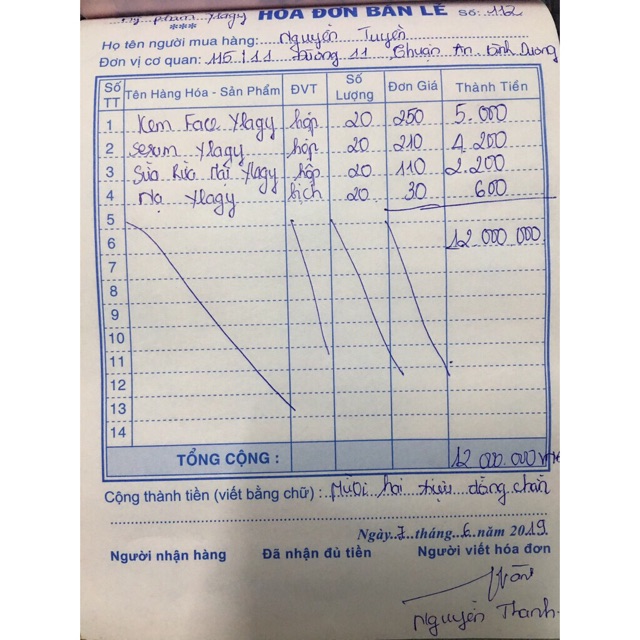 Mỹ phẩm Ylagy HÓA ĐƠN BÁN LẺ Số: 112
***
Họ tên người mua hàng: Nguyễn Tuyền
Đơn vị cơ quan: 115/11 Đường 11, Thuận An Bình Dương
Số TT Tên Hàng Hóa - Sản Phẩm ĐVT Số Lượng Đơn Giá Thành Tiền
1 Kem Face Ylagy hộp 20 250 5.000
2 Serum Ylagy hộp 20 210 4.200
3 Sữa Rửa Mặt Ylagy hộp 20 110 2.200
4 Nạ Ylagy bịch 20 30 600
5
6 12 000 000
7
8
9
10
11
12
13
14
TỔNG CỘNG : 12 000.000
Cộng thành tiền (viết bằng chữ) : Mười hai triệu đồng chẵn
Ngày 7 tháng 6 năm 2019
Người nhận hàng Đã nhận đủ tiền Người viết hóa đơn
Nguyễn Thanh